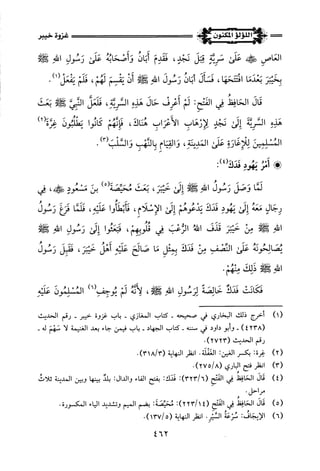 اللؤلؤ المكنون
غزوة خيبر
العاص ﷺ على سرية قبل نجد، فقدم أبان وأصحابه على رسول الله ﷺ
بخيبر بعدما افتتحها، فسأل أبان رسول الله ﷺ أن يقسم لهم، فلم يفعل(١).
قال الحافظ في الفتح: لم أعرف حال هذه السرية، فلعل النبي ﷺ بعث
هذه السرية إلى نجد لإرهاب الأعراب هناك، فإنهم كانوا يطلبون غرة(٢)
المسلمين للإغارة على المدينة، والقيام بالنهب والسلب(٣).
أمر يهود فدك(٤):
لما وصل رسول الله ﷺ إلى خيبر، بعث محيصة(٥) بن مسعود ﷺ، في
رجال معه إلى يهود فدك يدعوهم إلى الإسلام، فأبطأوا عليه، فلما فرغ رسول
الله ﷺ من خيبر قذف الله الرعب في قلوبهم، فبعثوا إلى رسول الله ﷺ
يصالحونه على النصف من فدك بمثل ما صالح عليه أهل خيبر، فقبل رسول
الله ﷺ ذلك منهم.
فكانت فدك خالصة لرسول الله ﷺ، لأنه لم يوجف(٦) المسلمون عليه
(١) أخرج ذلك البخاري في صحيحه - كتاب المغازي - باب غزوة خيبر - رقم الحديث
(٤٢٣٨) - وأبو داود في سننه - كتاب الجهاد - باب فيمن جاء بعد الغنيمة لا سهم له -
رقم الحديث (٢٧٢٣).
(٢) غرة: بكسر الغين: الغفلة. انظر النهاية (٣١٨/٣).
(٣) انظر فتح الباري (٢٧٥/٨).
(٤) قال الحافظ في الفتح (٣٢٣/٦): فدك: بفتح الفاء والدال: بلد بينها وبين المدينة ثلاث
مراحل.
(٥) قال الحافظ في الفتح (٢٢٣/١٤): محيصة: بضم الميم وتشديد الياء المكسورة.
(٦) الإيجاف: سرعة السير. انظر النهاية (١٣٧/٥).
٤٦٢